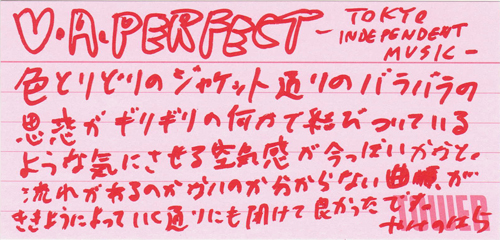 V.A.PERFECT - TOKYO
INDEPENDENT
MUSIC -
色とりどりのジャケット通りのバラバラの
思惑がギリギリの何かで結びついている
ような気にさせる空気感が今っぽいかがと。
流れがあるのかがいのかわからない曲順が
ききようによっていく通りにも聞けて良かったでした
TOWER